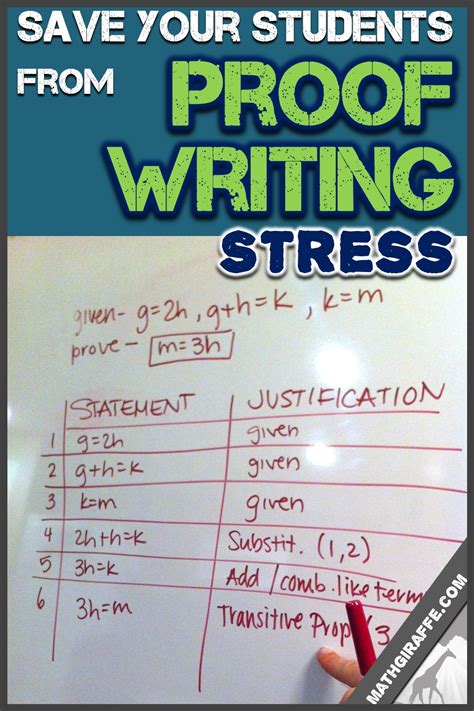 SAVE YOUR STUDENTS
FROM PROOF
WRITING
STRESS
given- g=2h, g+h=k, k=m
prove- m=3h
STATEMENT JUSTIFICATION
1 g=2h given
2 g+h=k given
3 k=m given
4 2h+h=k Substit. (1,2)
5 3h=k Add/comb. like term
6 3h=m Transitive Prop 3
MATHGIRAFFE.COM